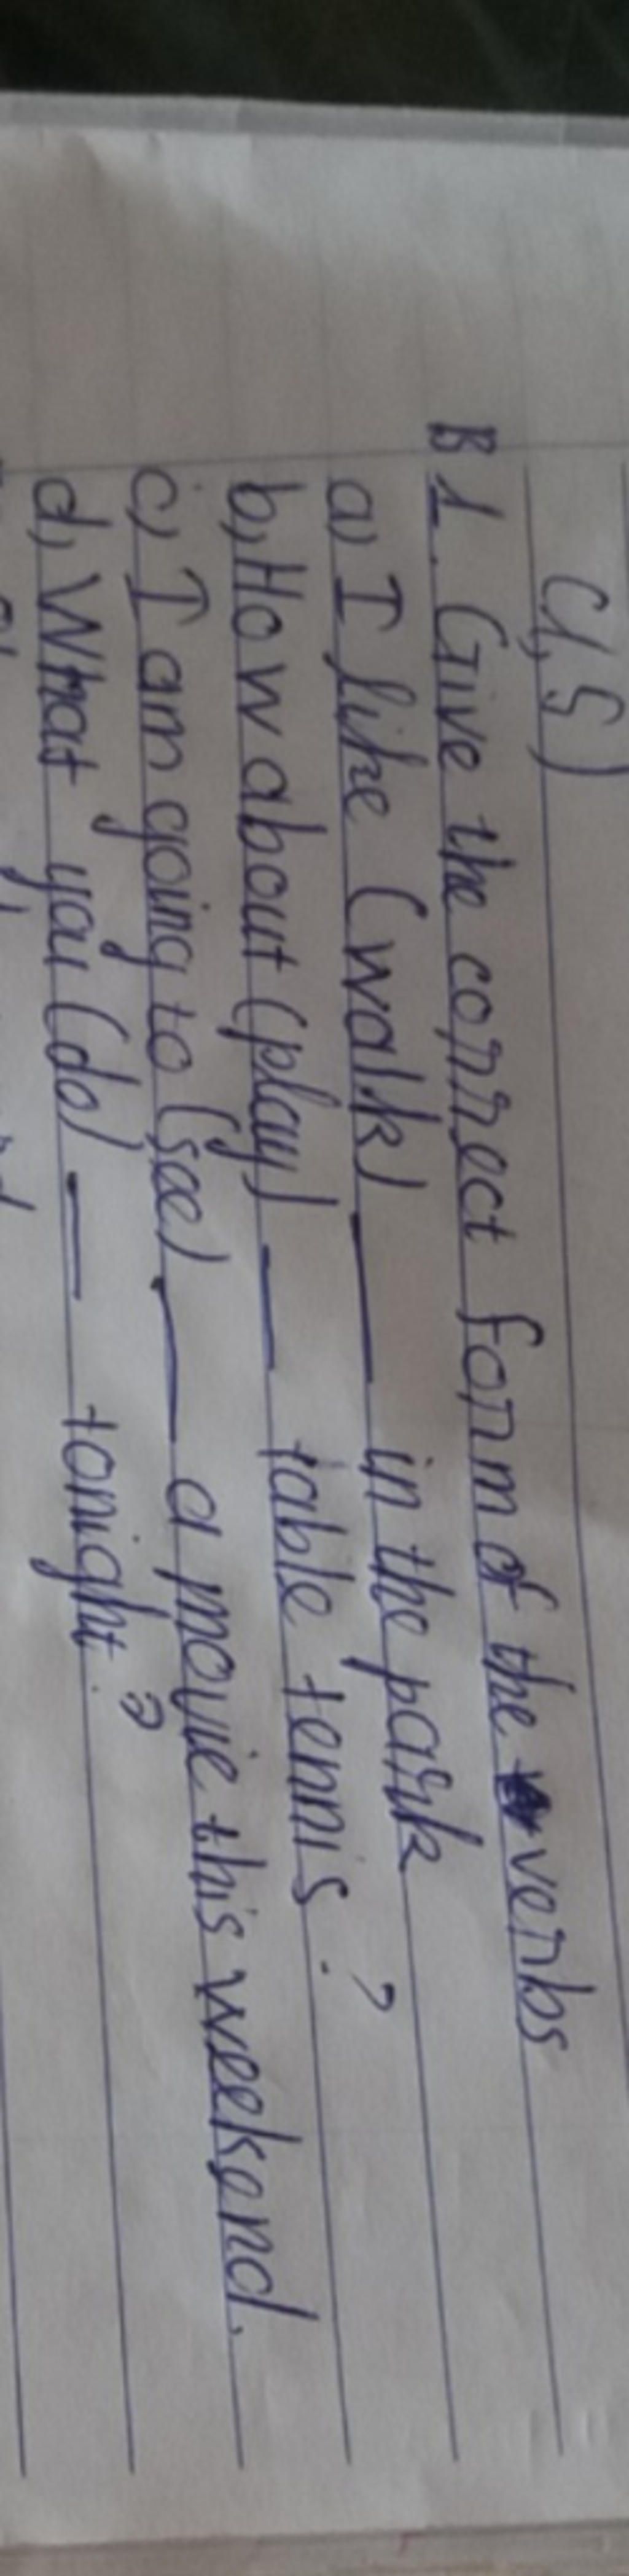 (1,5)
B1. Give the correct form of the verbs
a, I like (walk) ___ in the park
b, How about (play) ___ table tennis ?
c, I am going to (see) ___ a movie this weekend.
d, What you (do) ___ tonight ?